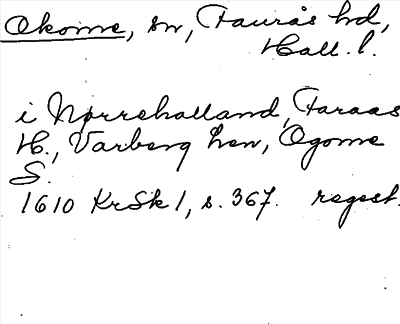 Okome, sn, Faurås hd,
Hall. l.
i Nørrehalland, Faraas
H., Varberg Len, Ogome
S.
1610 KrSk 1, s. 367. regest.